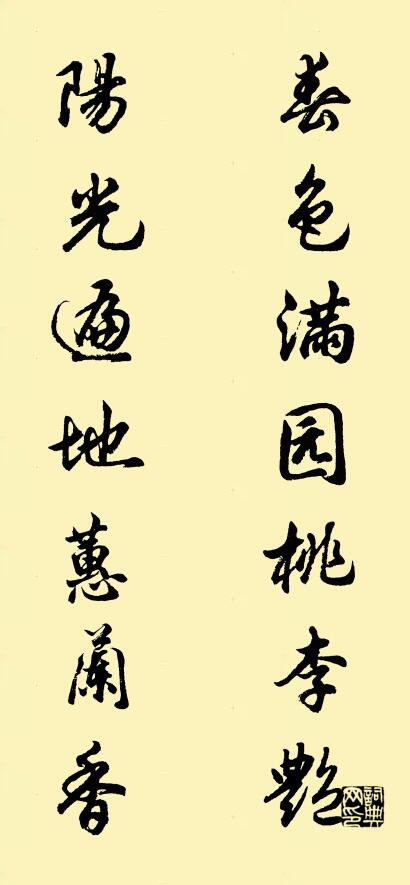 春色满园桃李艷
陽光遍地蕙蘭香
詞典网印